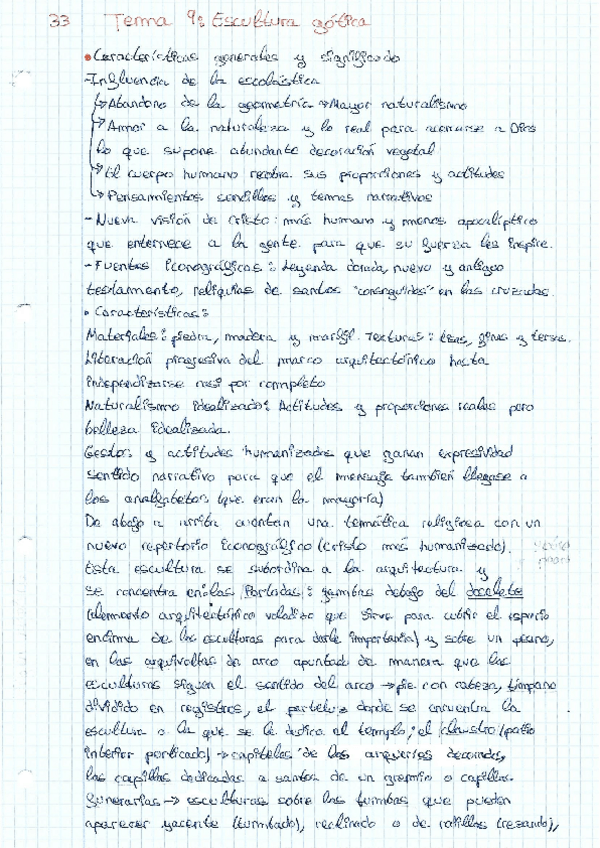 33 Tema 9: Escultura gótica
• Características generales y significado
- Influencia de la escolástica
↳ Abandono de la geometría → Mayor naturalismo
↳ Amor a la naturaleza y lo real para acercarse a Dios
lo que supone abundante decoración vegetal
↳ El cuerpo humano recobra sus proporciones y actitudes
↳ Pensamientos sencillos y temas narrativos
- Nueva visión de Cristo: más humano y menos apocalíptico
que enternece a la gente para que su fuerza les inspire.
- Fuentes iconográficas: Leyenda dorada, nuevo y antiguo
testamento, reliquias de santos "conseguidas" en las cruzadas.
• Características:
Materiales: piedra, madera y marfil. Texturas: lisas, finas y tersas.
Liberación progresiva del marco arquitectónico hasta
independizarse casi por completo
Naturalismo idealizado: Actitudes y proporciones reales pero
belleza idealizada.
Gestos y actitudes humanizadas que ganan expresividad
sentido narrativo para que el mensaje también llegase a
los analfabetos (que eran la mayoría)
De abajo a arriba cuentan una temática religiosa con un
nuevo repertorio iconográfico (Cristo más humanizado).
Esta escultura se subordina a la arquitectura y
se concentra en: las Portadas: jambas debajo del doselete
(elemento arquitectónico voladizo que sirve para cubrir el espacio
encima de las esculturas para darle importancia) y sobre un
en las arquivoltas de arco apuntado de manera que las
esculturas siguen el sentido del arco → pie con cabeza, tímpano
dividido en registros, el parteluz donde se encuentra la
escultura a la que se le dedica el templo; el claustro (patio
interior porticado) → capiteles de las arquerías decoradas,
las capillas dedicadas a santos de un gremio o capillas
funerarias → esculturas sobre las tumbas que pueden
aparecer yacente (tumbado), reclinado o de rodillas (rezando),